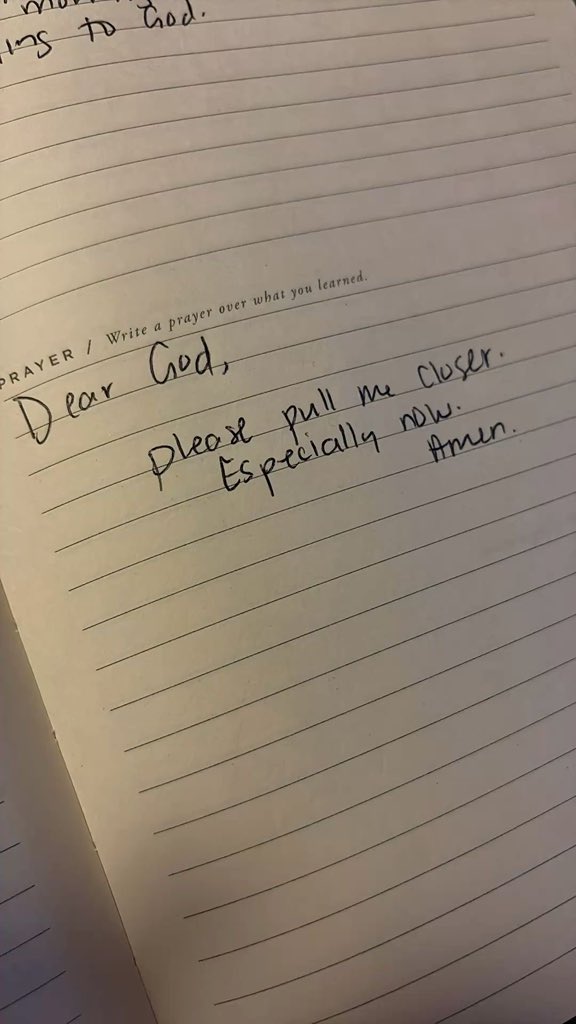 to God.
PRAYER / Write a prayer over what you learned.
Dear God,
Please pull me closer.
Especially now.
Amen.